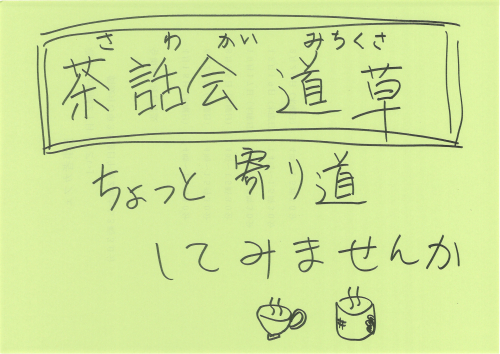 さ わ かい みちくさ
茶話会 道草
ちょっと寄り道
してみませんか